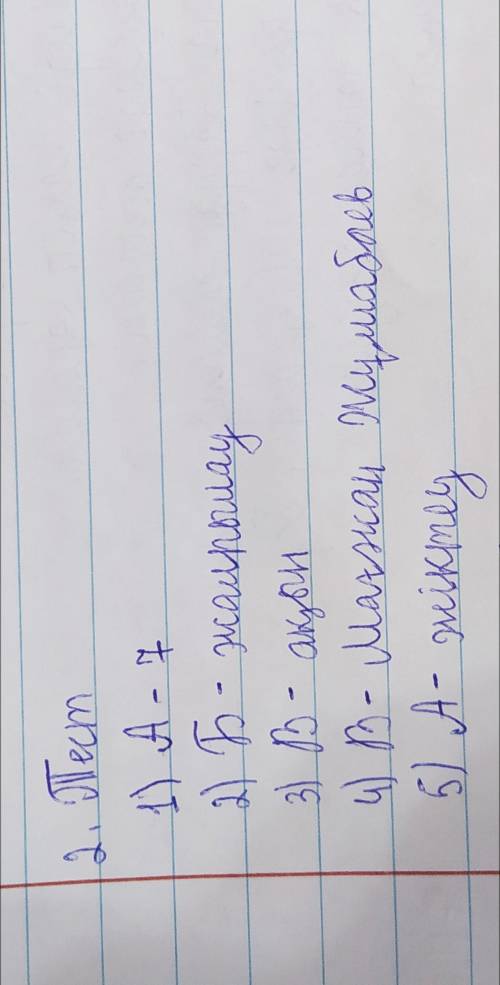 2. Тест
1) А - 7
2) Б - жалпылау
3) В - ақын
4) В - Мағжан Жұмабаев
5) А - жіктеу